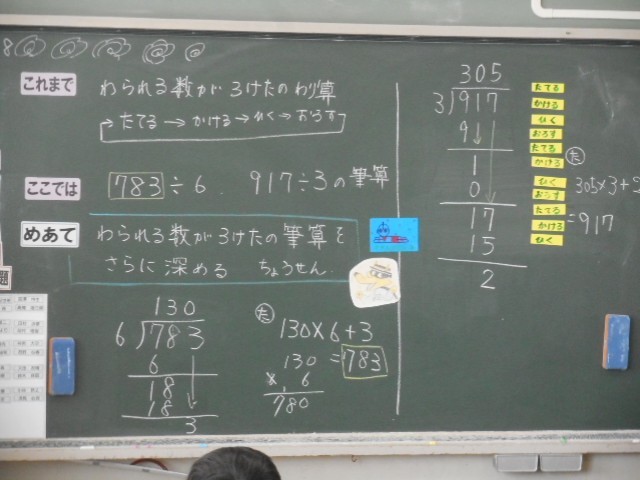 これまで
わられる数が3けたのわり算
→たてる→かける→ひく→おろす
ここでは
783÷6. 917÷3の筆算
めあて
わられる数が3けたの筆算を
さらに深める ちょうせん.
130
6)783
6
18
18
3
た
130×6+3
=783
130
×6
780
305
3)917
9
1
0
17
15
2
たてる
かける
ひく
おろす
たてる
かける
ひく
おろす
たてる
かける
ひく
た
305×3+2
=917
題